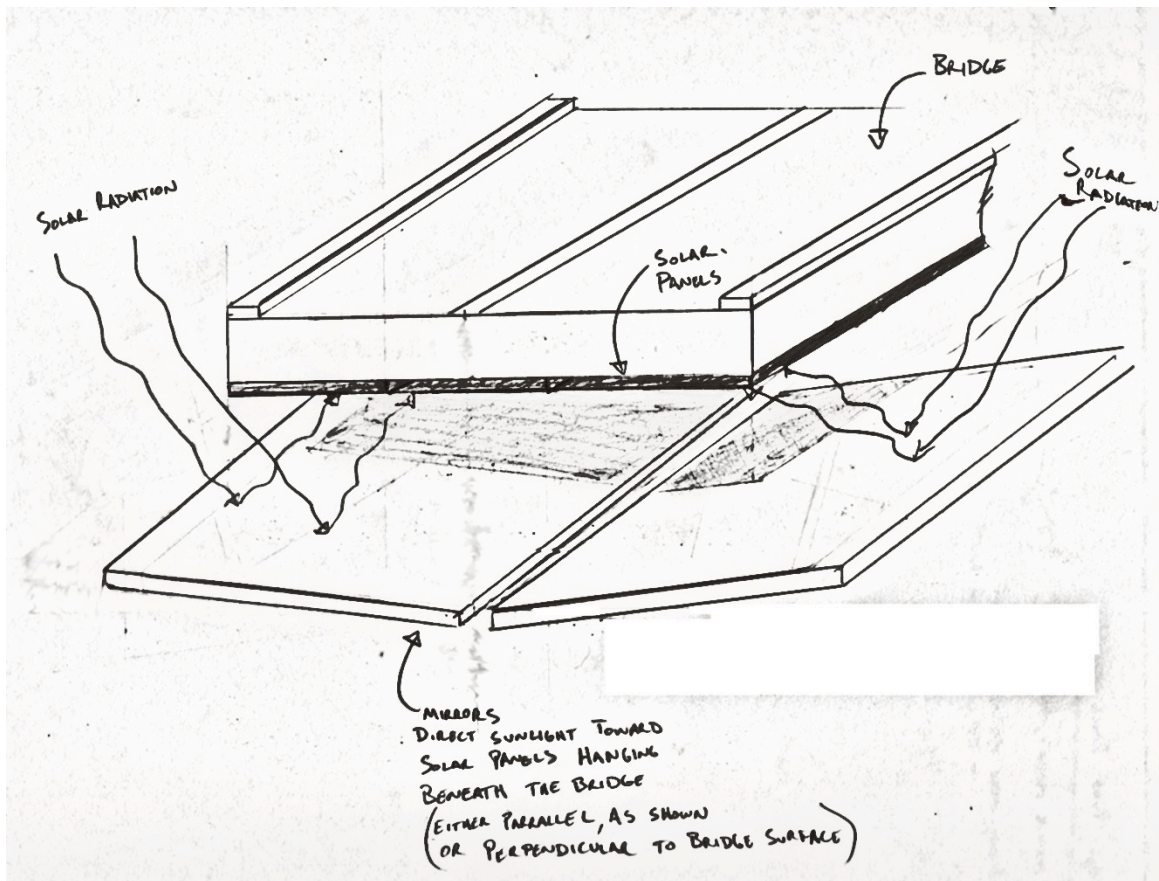 BRIDGE
SOLAR
RADIATION
SOLAR RADIATION
SOLAR
PANELS
MIRRORS
DIRECT SUNLIGHT TOWARD
SOLAR PANELS HANGING
BENEATH THE BRIDGE
(EITHER PARRALLEL, AS SHOWN
OR PERPENDICULAR TO BRIDGE SURFACE)